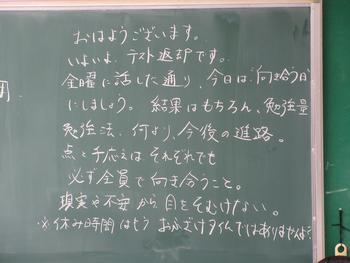 おはようございます。
いよいよ、テスト返却です。
金曜に話した通り、今日は"向き合う日"
にしましょう。結果はもちろん、勉強量
勉強法、何より、今後の進路。
点と手応えはそれぞれでも
必ず全員で向き合うこと。
現実や不安から目をそむけない。
※休み時間はもう おふざけタイムではありませんよ?